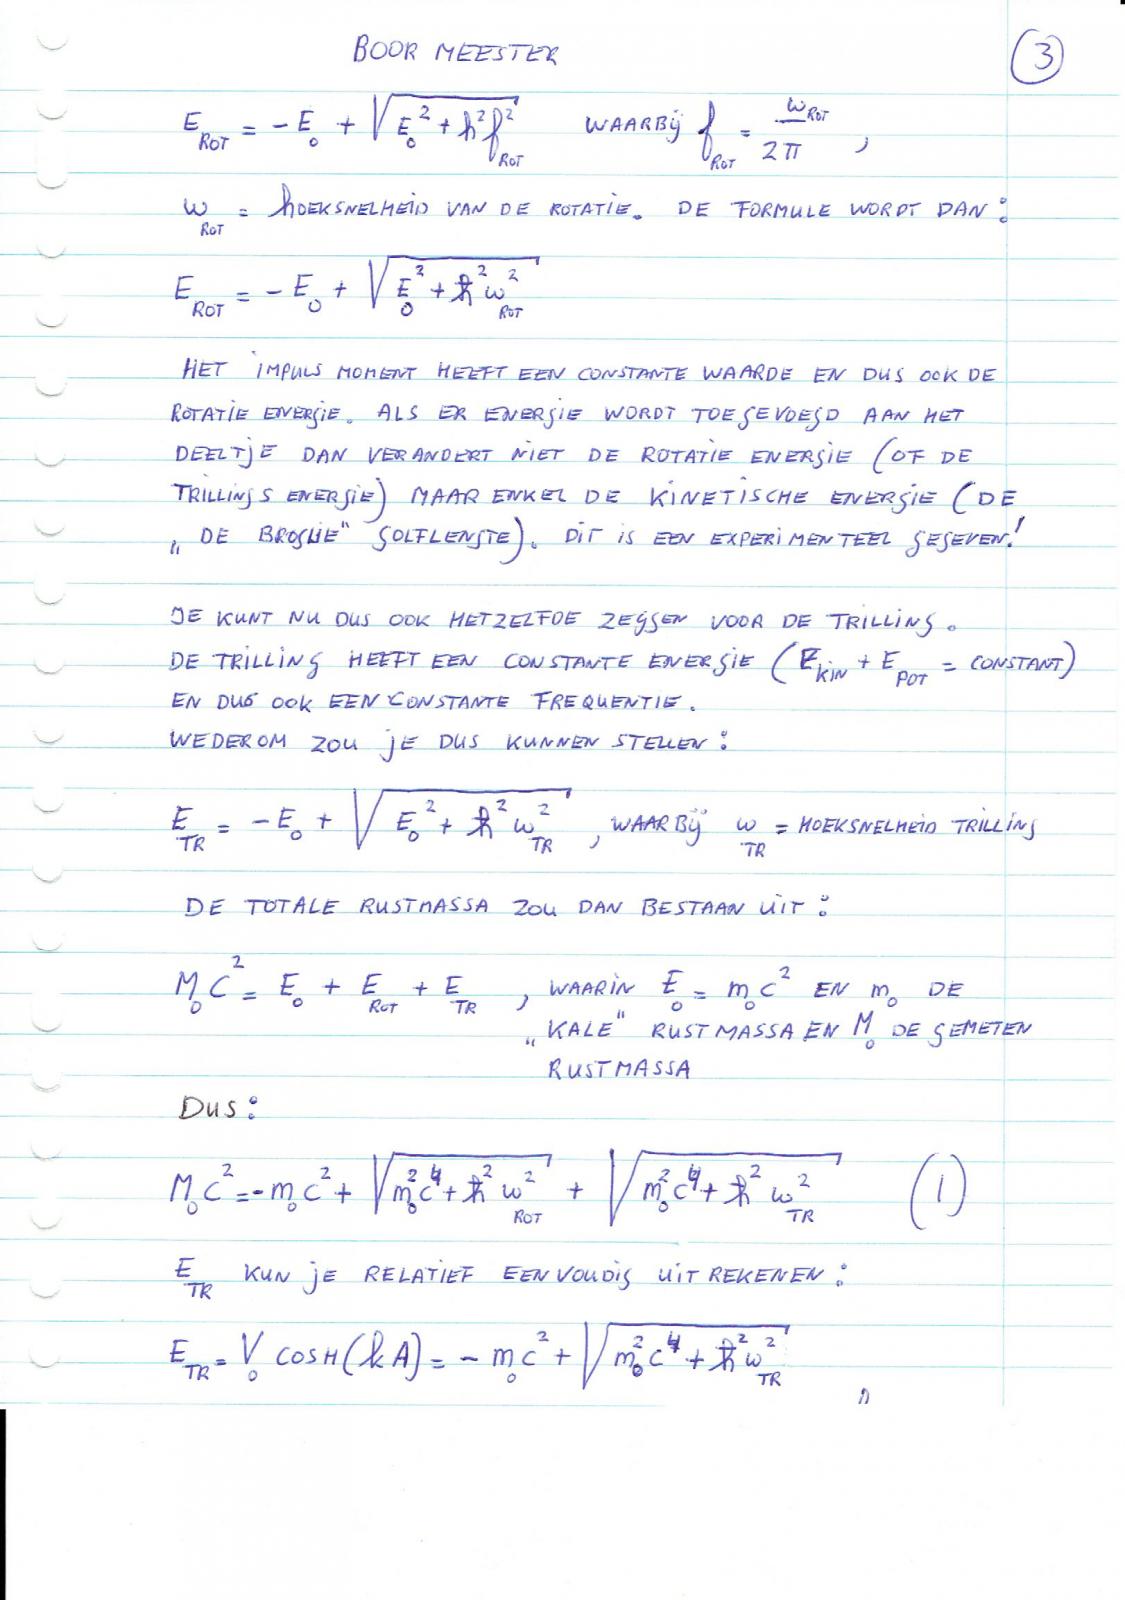 BOOR MEESTER
3
E_ROT = -E_0 + √(E_0² + h²f_ROT²) WAARBIJ f_ROT = ω_ROT / 2π ,
ω_ROT = HOEKSNELHEID VAN DE ROTATIE. DE FORMULE WORDT DAN:
E_ROT = -E_0 + √(E_0² + ħ²ω_ROT²)
HET IMPULS MOMENT HEEFT EEN CONSTANTE WAARDE EN DUS OOK DE
ROTATIE ENERGIE. ALS ER ENERGIE WORDT TOEGEVOEGD AAN HET
DEELTJE DAN VERANDERT NIET DE ROTATIE ENERGIE (OF DE
TRILLINGS ENERGIE) MAAR ENKEL DE KINETISCHE ENERGIE (DE
„DE BROGLIE" GOLFLENGTE). DIT IS EEN EXPERIMENTEEL GEGEVEN!
JE KUNT NU DUS OOK HETZELFDE ZEGGEN VOOR DE TRILLING.
DE TRILLING HEEFT EEN CONSTANTE ENERGIE (E_KIN + E_POT = CONSTANT)
EN DUS OOK EEN CONSTANTE FREQUENTIE.
WEDEROM ZOU JE DUS KUNNEN STELLEN:
E_TR = -E_0 + √(E_0² + ħ²ω_TR²) , WAARBIJ ω_TR = HOEKSNELHEID TRILLING
DE TOTALE RUSTMASSA ZOU DAN BESTAAN UIT:
M_0C² = E_0 + E_ROT + E_TR , WAARIN E_0 = m_0c² EN m_0 DE
„KALE" RUSTMASSA EN M_0 DE GEMETEN
RUSTMASSA
DUS:
M_0C² = -m_0c² + √(m_0²c⁴ + ħ²ω_ROT²) + √(m_0²c⁴ + ħ²ω_TR²) (1)
E_TR KUN JE RELATIEF EENVOUDIG UITREKENEN:
E_TR = V_0 COSH(kA) = -m_0c² + √(m_0²c⁴ + ħ²ω_TR²)